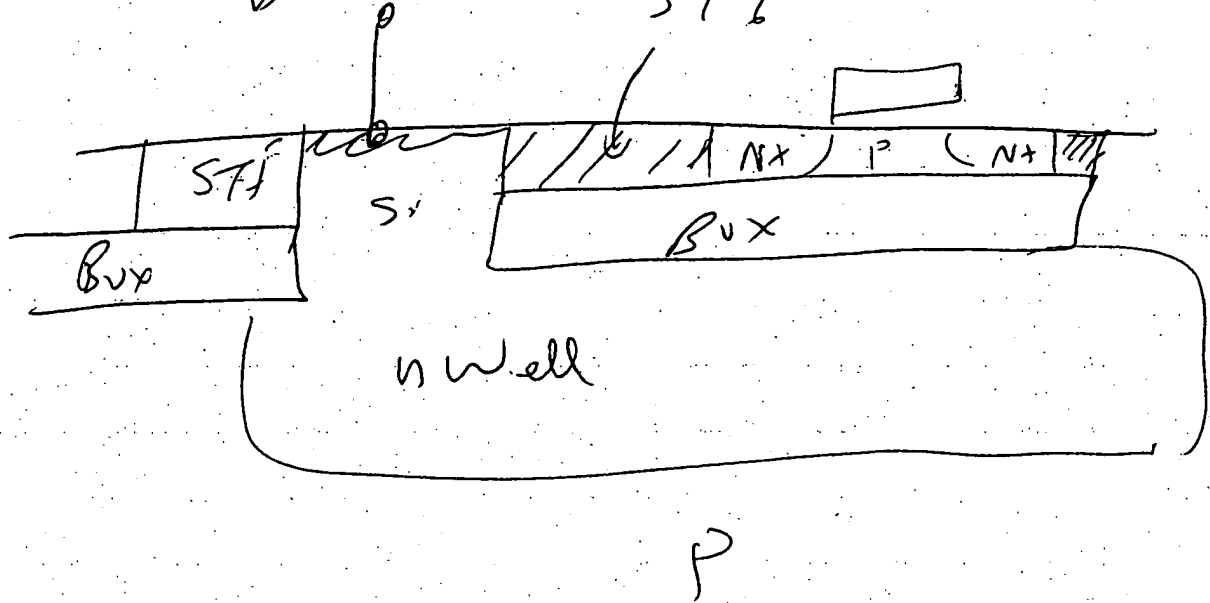 STI
STI
N+
P
N+
Si
BOX
BOX
n well
P